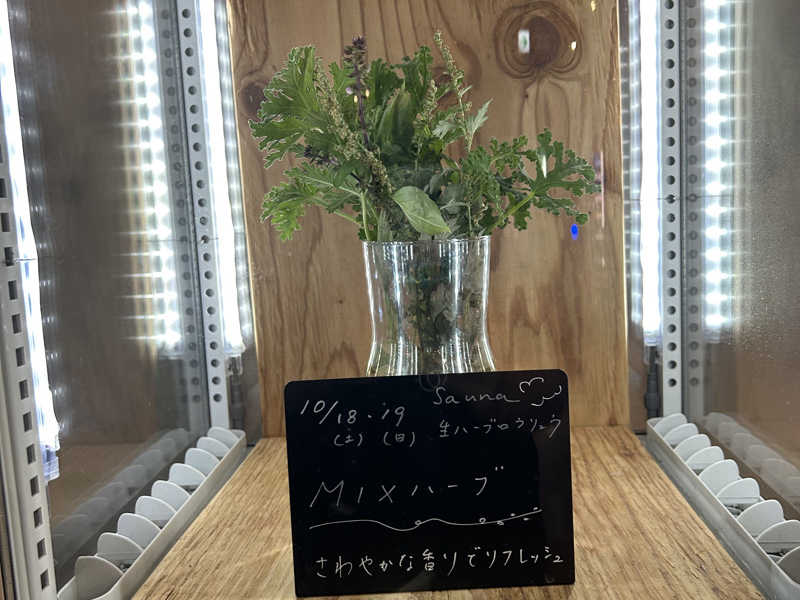 10/18・19 Sauna
(土) (日) 生ハーブロウリュウ
MIXハーブ
さわやかな香りでリフレッシュ